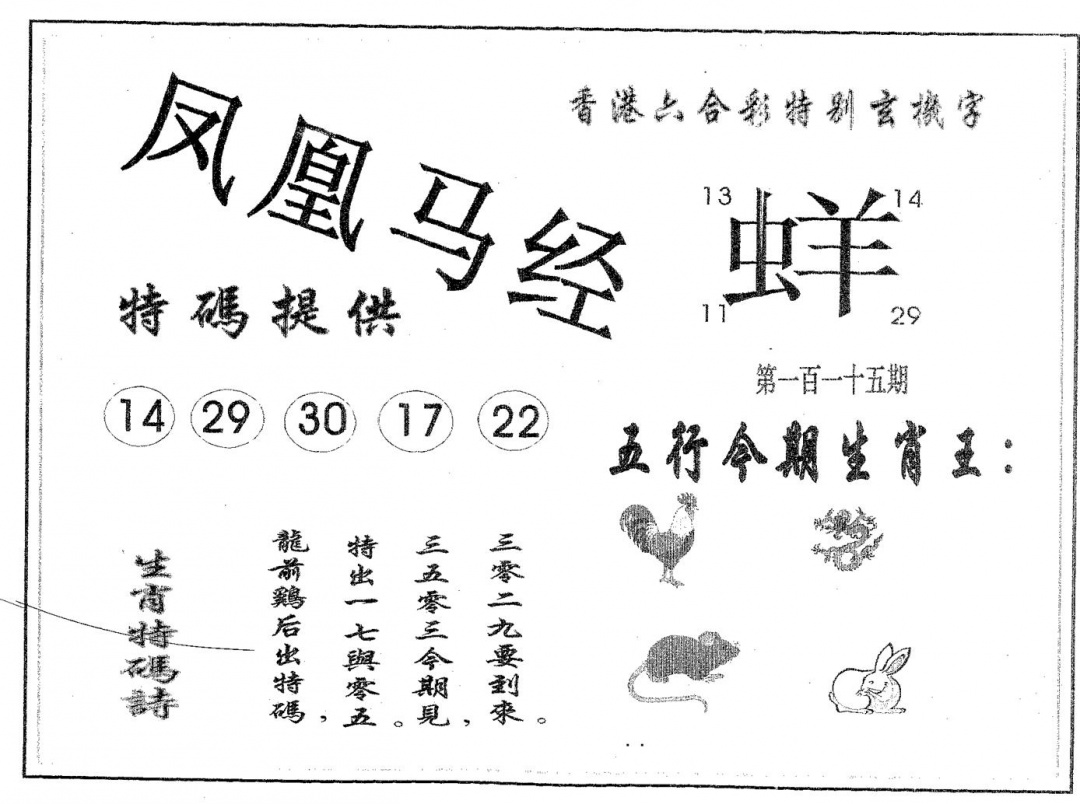 凤凰马经
香港六合彩特别玄機字
13 14
蛘
11 29
特碼提供
第一百一十五期
14 29 30 17 22
五行今期生肖王：
生肖特碼詩
龍前鷄后出特碼，
特出一七與零五。
三五零三今期見，
三零二九要到來。